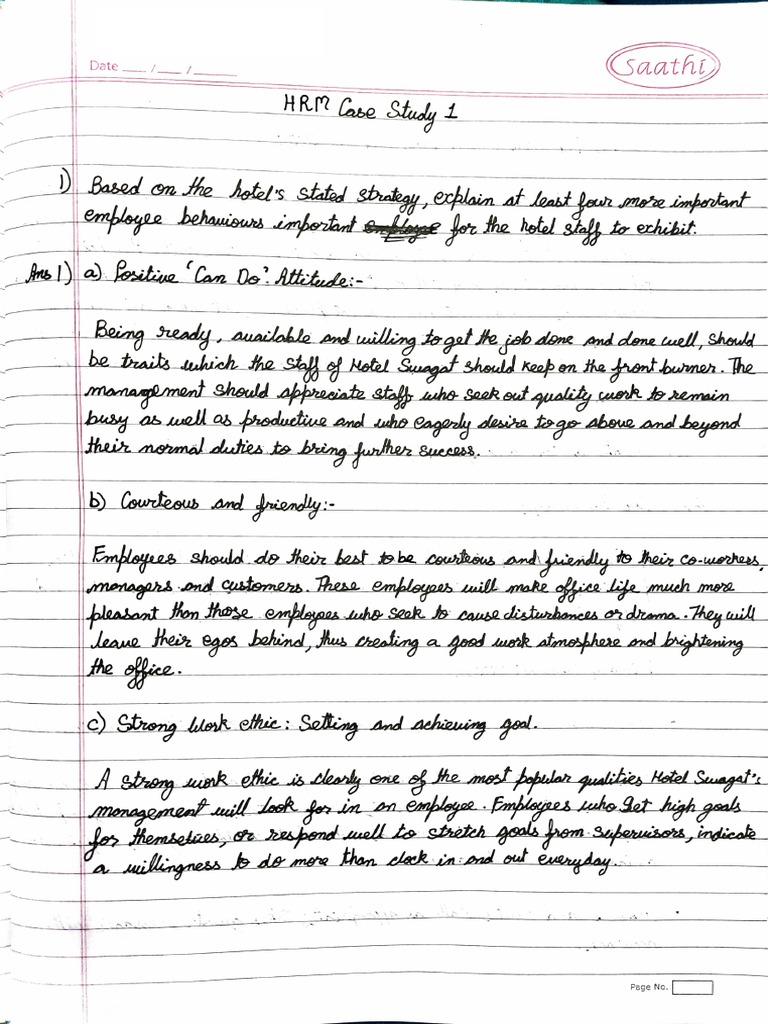 Date ___ / ___ / _____
Saathi
HRM Case Study 1
1) Based on the hotel's stated strategy, explain at least four more important
employee behaviours important for the hotel staff to exhibit.
Ans 1) a) Positive 'Can Do'. Attitude:-
Being ready, available and willing to get the job done and done well, should
be traits which the staff of Hotel Swagat should keep on the front burner. The
management should appreciate staff who seek out quality work to remain
busy as well as productive and who eagerly desire to go above and beyond
their normal duties to bring further success.
b) Courteous and friendly:-
Employees should do their best to be courteous and friendly to their co-workers,
managers and customers. These employees will make office life much more
pleasant than those employees who seek to cause disturbances or drama. They will
leave their egos behind, thus creating a good work atmosphere and brightening
the office.
c) Strong Work ethic: Setting and achieving goal.
A strong work ethic is clearly one of the most popular qualities Hotel Swagat's
management will look for in an employee. Employees who set high goals
for themselves, or respond well to stretch goals from supervisors, indicate
a willingness to do more than clock in and out everyday.
Page No.